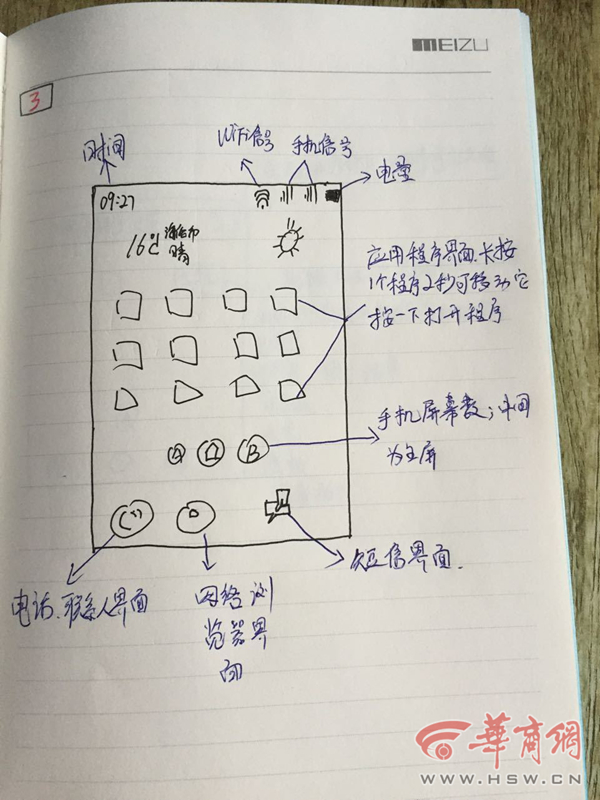 MEIZU
3
时间
WiFi信号
手机信号
电量
09:27
16℃
晴
应用程序界面.长按
1个程序2秒可移动它
按一下打开程序
手机屏幕数;中间
为主屏
B
短信界面.
电话.联系人界面
网络浏
览器界
面
華商網
WWW.HSW.CN